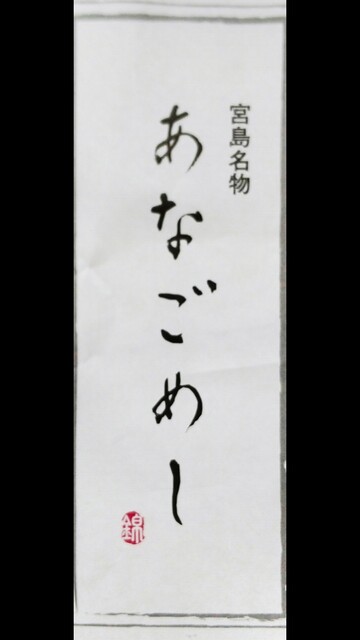 宮島名物
あなごめし
錦